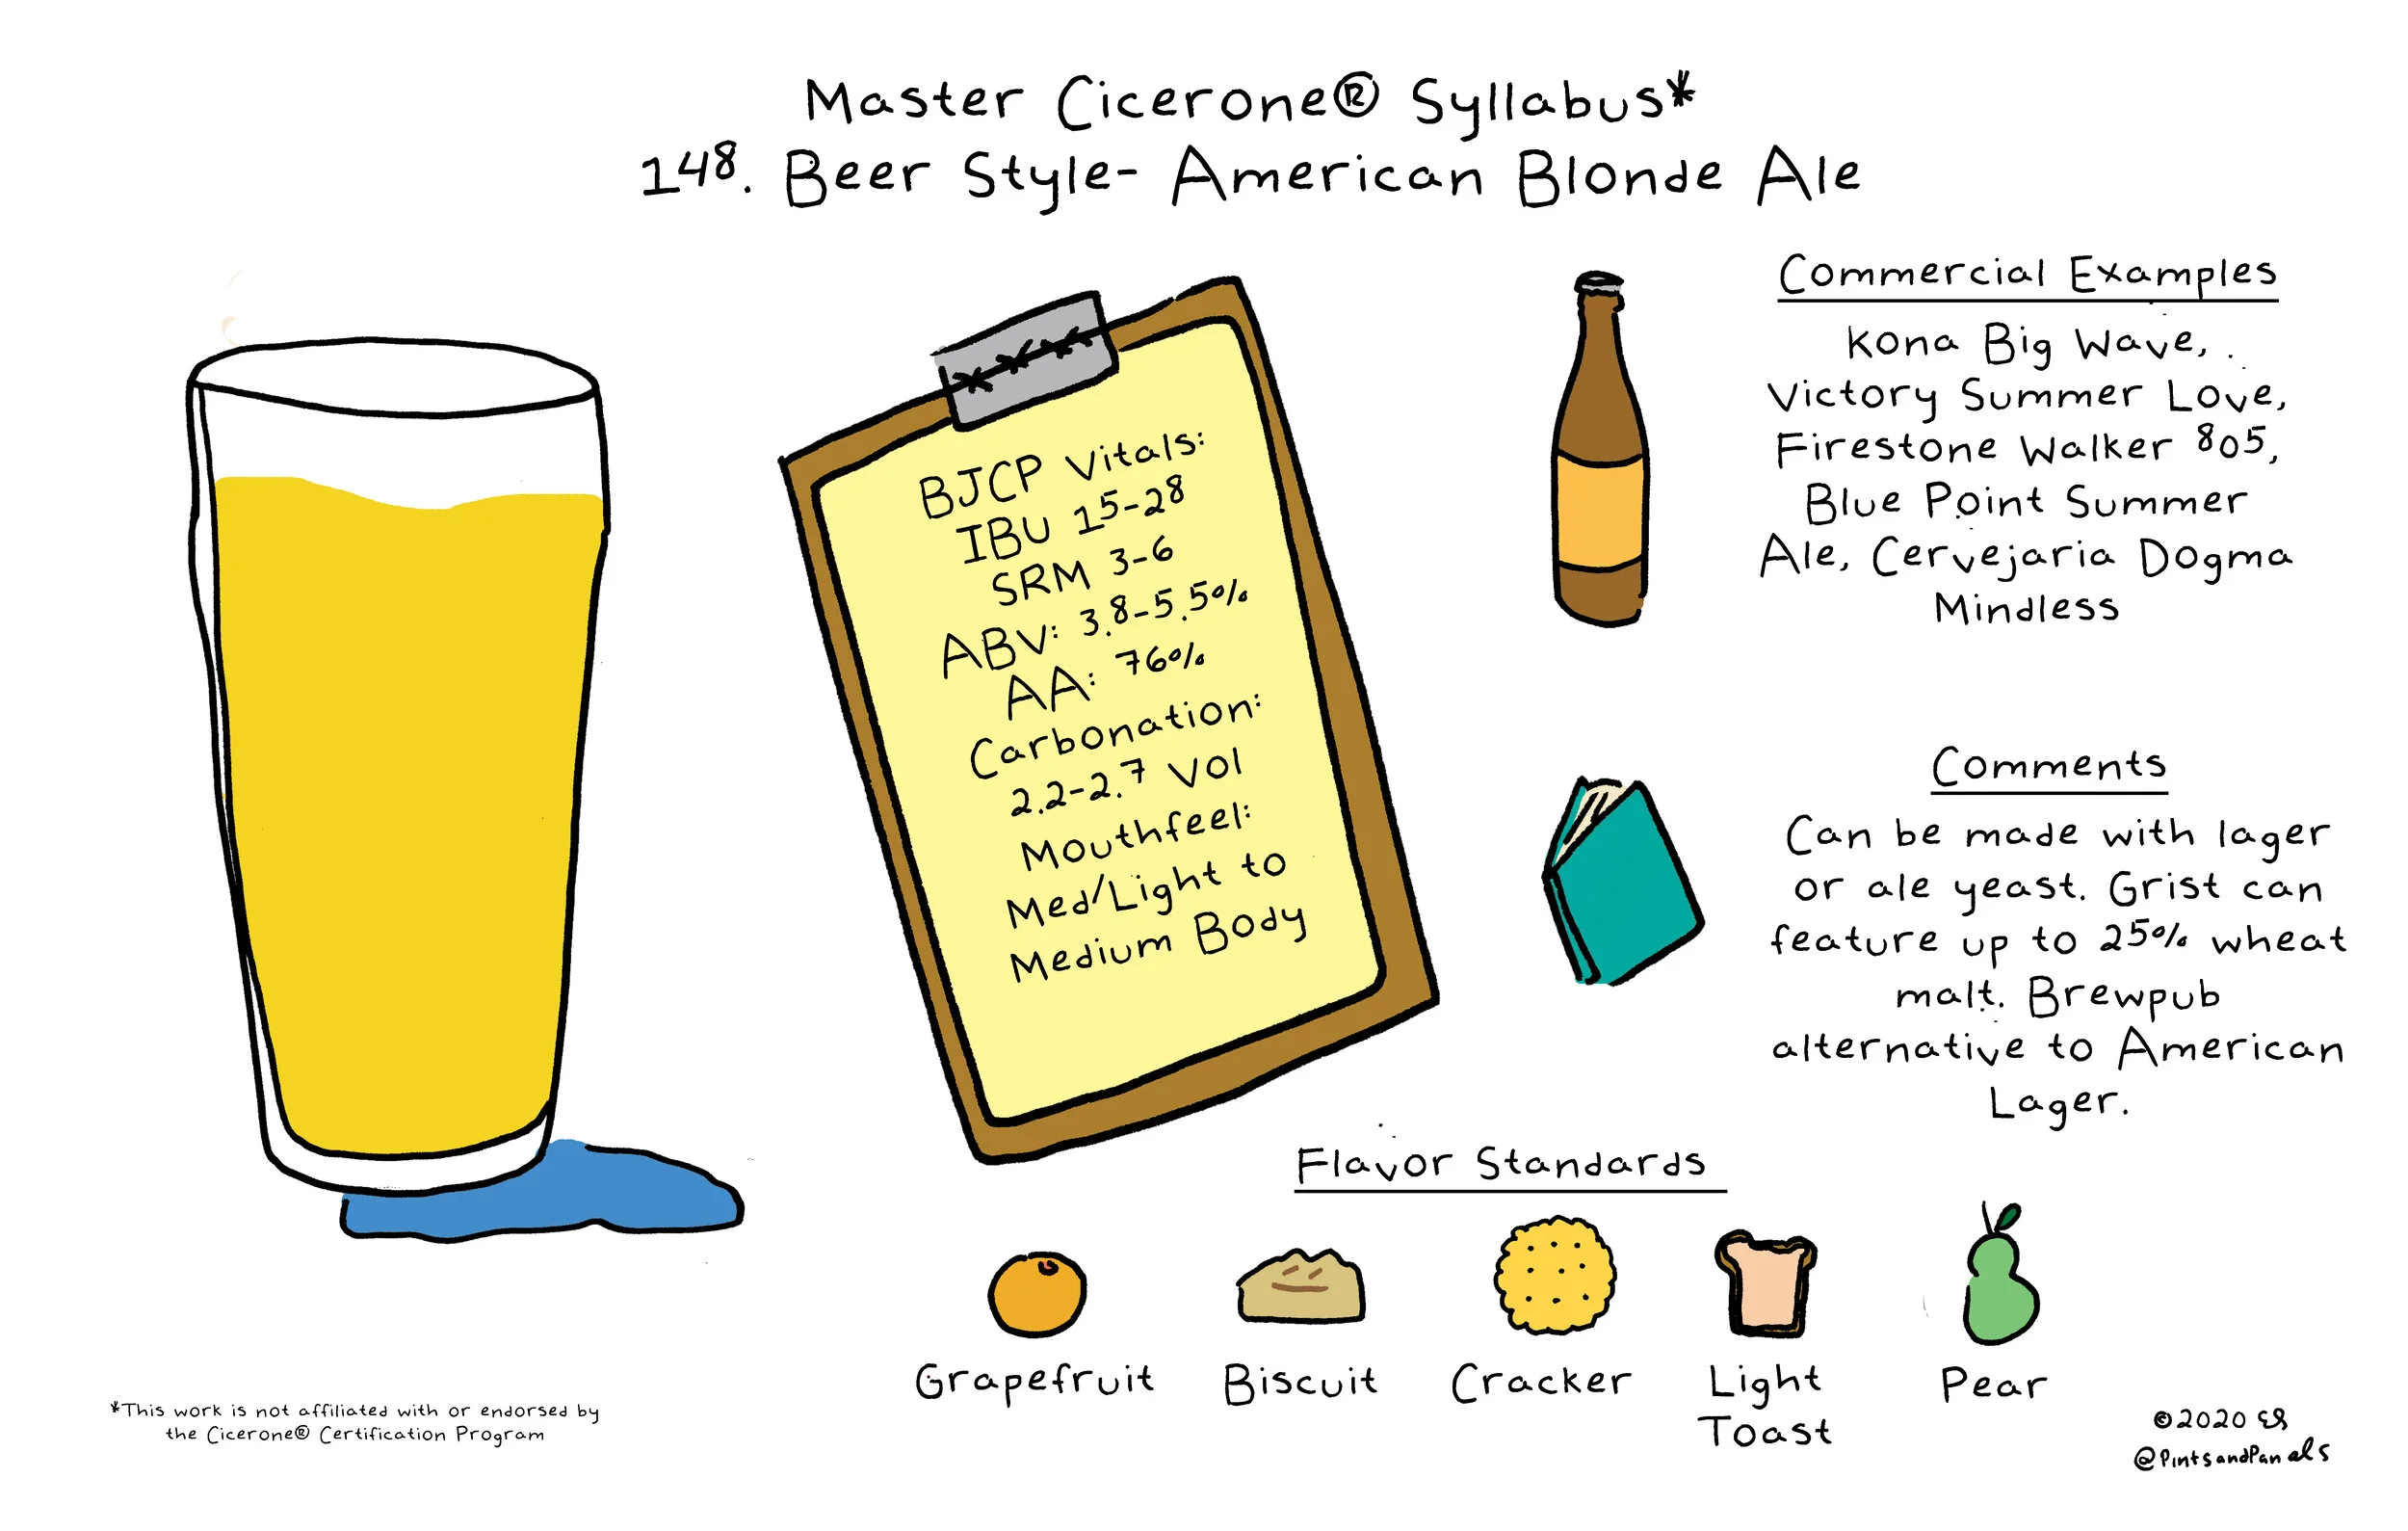 Master Cicerone® Syllabus*
148. Beer Style- American Blonde Ale
BJCP Vitals:
IBU 15-28
SRM 3-6
ABV: 3.8-5.5%
AA: 76%
Carbonation:
2.2-2.7 Vol
Mouthfeel:
Med/Light to
Medium Body
Commercial Examples
Kona Big Wave,
Victory Summer Love,
Firestone Walker 805,
Blue Point Summer
Ale, Cervejaria Dogma
Mindless
Comments
Can be made with lager
or ale yeast. Grist can
feature up to 25% wheat
malt. Brewpub
alternative to American
Lager.
Flavor Standards
Grapefruit
Biscuit
Cracker
Light
Toast
Pear
*This work is not affiliated with or endorsed by
the Cicerone® Certification Program
©2020 ES
@PintsandPanels